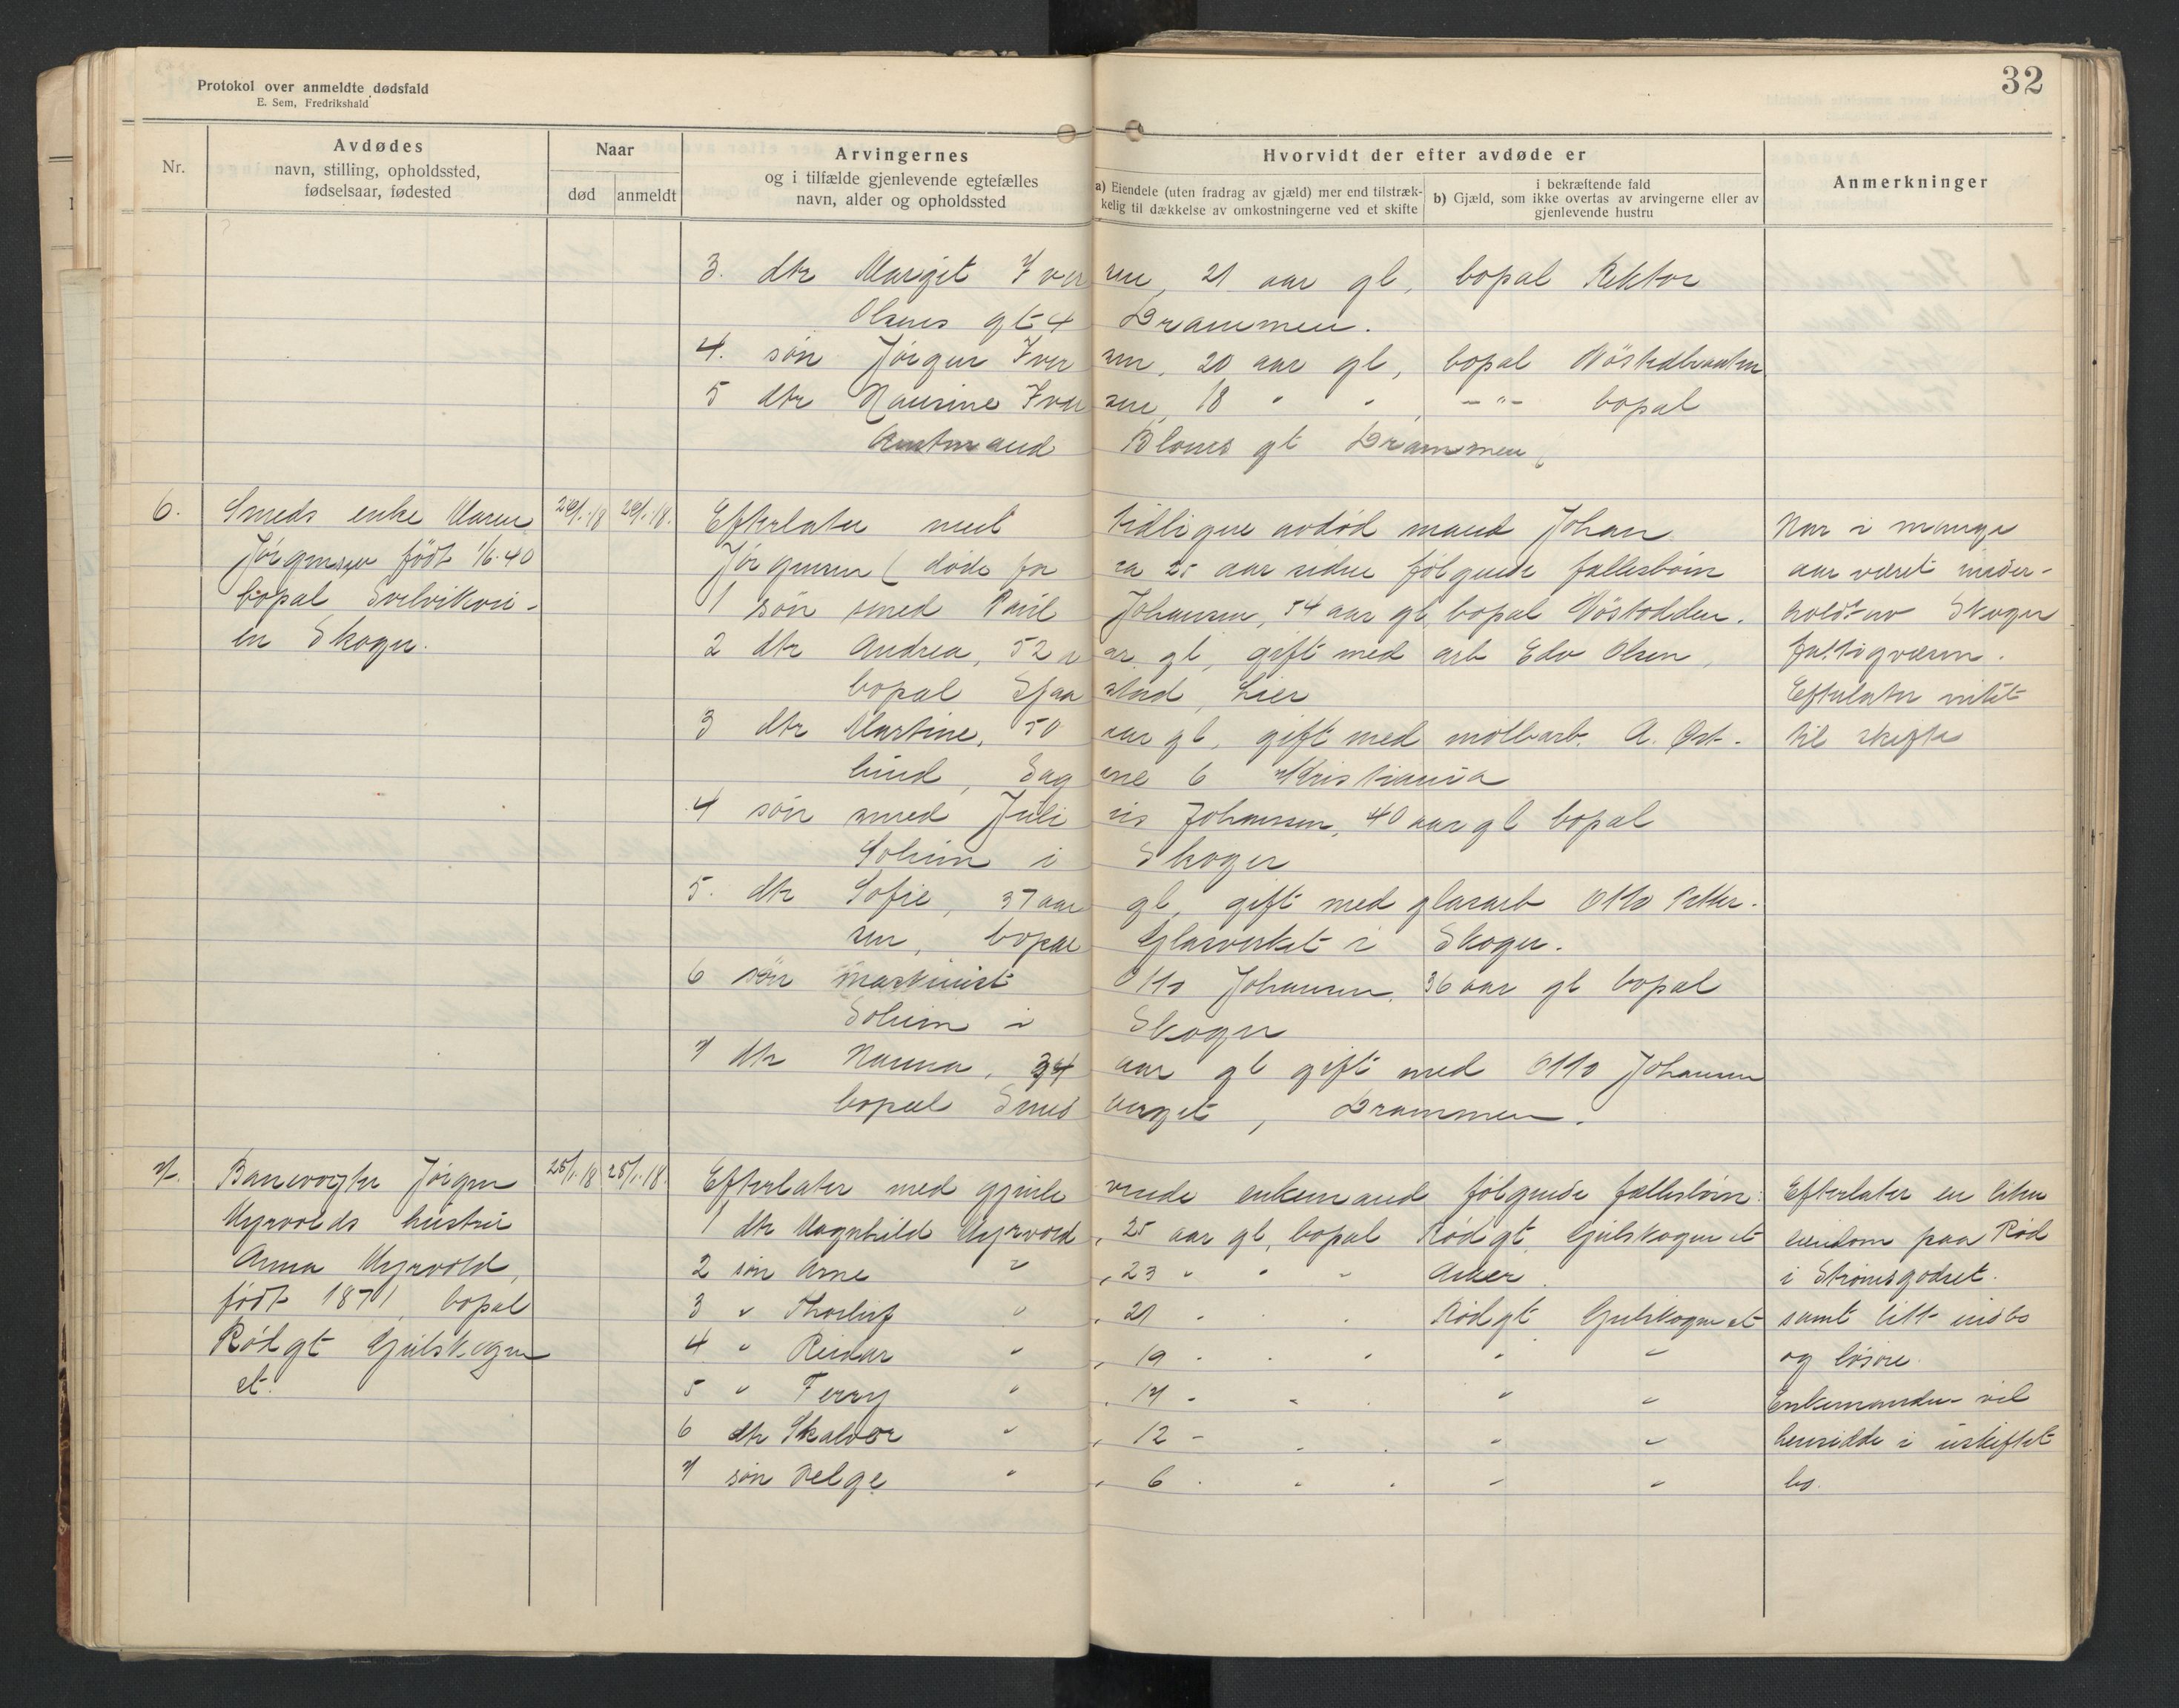 Protokol over anmeldte dødsfald
E. Sem, Fredrikshald
32
Nr.
Avdødes
navn, stilling, opholdssted,
fødselsaar, fødested
Naar
død anmeldt
Arvingernes
og i tilfælde gjenlevende egtefælles
navn, alder og opholdssted
Hvorvidt der efter avdøde er
a) Eiendele (uten fradrag av gjæld) mer end tilstræk-
kelig til dækkelse av omkostningerne ved et skifte
i bekræftende fald
b) Gjæld, som ikke overtas av arvingerne eller av
gjenlevende hustru
Anmerkninger
3. dtr Margit Iversen, 21 aar gl, bopal Rektor
Olsens gt 4 Drammen.
4. søn Jørgen Iversen, 20 aar gl, bopal
5 dtr Iversen, 18 " " , -"- bopal
Amtmand Bloms gt Drammen
6.
Smeds enke Maren
Jørgensen født 1/6.40
bopal Svelvikvei-
en Skoger.
Efterlater med tidligere avdød mand Johan
Jørgensen (døde for ca 25 aar siden følgende fallesbørn
1 søn smed Paul Johansen, 54 aar gl, bopal
2 dtr Andrea, 52 aar gl, gift med arb Edv Olsen,
bopal Lier
3 dtr Martine, 50 aar gl, gift med møllearb. A. Øst-
lund, Sagene 6 Kristiania
4 søn smed Julius Johansen, 40 aar gl bopal
Solum i Skoger
5. dtr Sofie, 37 aar gl, gift med glasarb Otto Petter-
sen, bopal Glasverket i Skoger.
6 søn maskinist Otto Johansen, 36 aar gl bopal
Solum i Skoger
7 dtr Hanna, 34 aar gl gift med Otto Johansen
bopal Drammen.
Har i mange
aar været under-
holdt av Skoger
fattigvæsen.
Efterlater intet
til skifte
7.
Banevogter Jørgen
Myrvolds hustru
Anna Myrvold,
født 1871, bopal
Rødgt Gulskogen
et.
25/1.18 25/1.18.
Efterlater med gjenlevende enkemand følgende fællesbørn:
1 dtr Magnhild Myrvold, 25 aar gl, bopal Rødgt Gulskogen et
2 søn Arne " , 23 " " " Aker.
3 " Thorleif " , 21 " " Rødgt Gulskogen et
4 " Reidar " , 19 " " " " "
5 " Ferry " , 14 " " " "
6 dtr " , 12 " " " " "
7 søn Helge " , 6 " " " " "
Efterlater en liten
eiendom paa Rød
i Strømsgodset.
samt litt indbo
og løsøre.
Enkemanden vil
hensidde i uskiftet
bo.